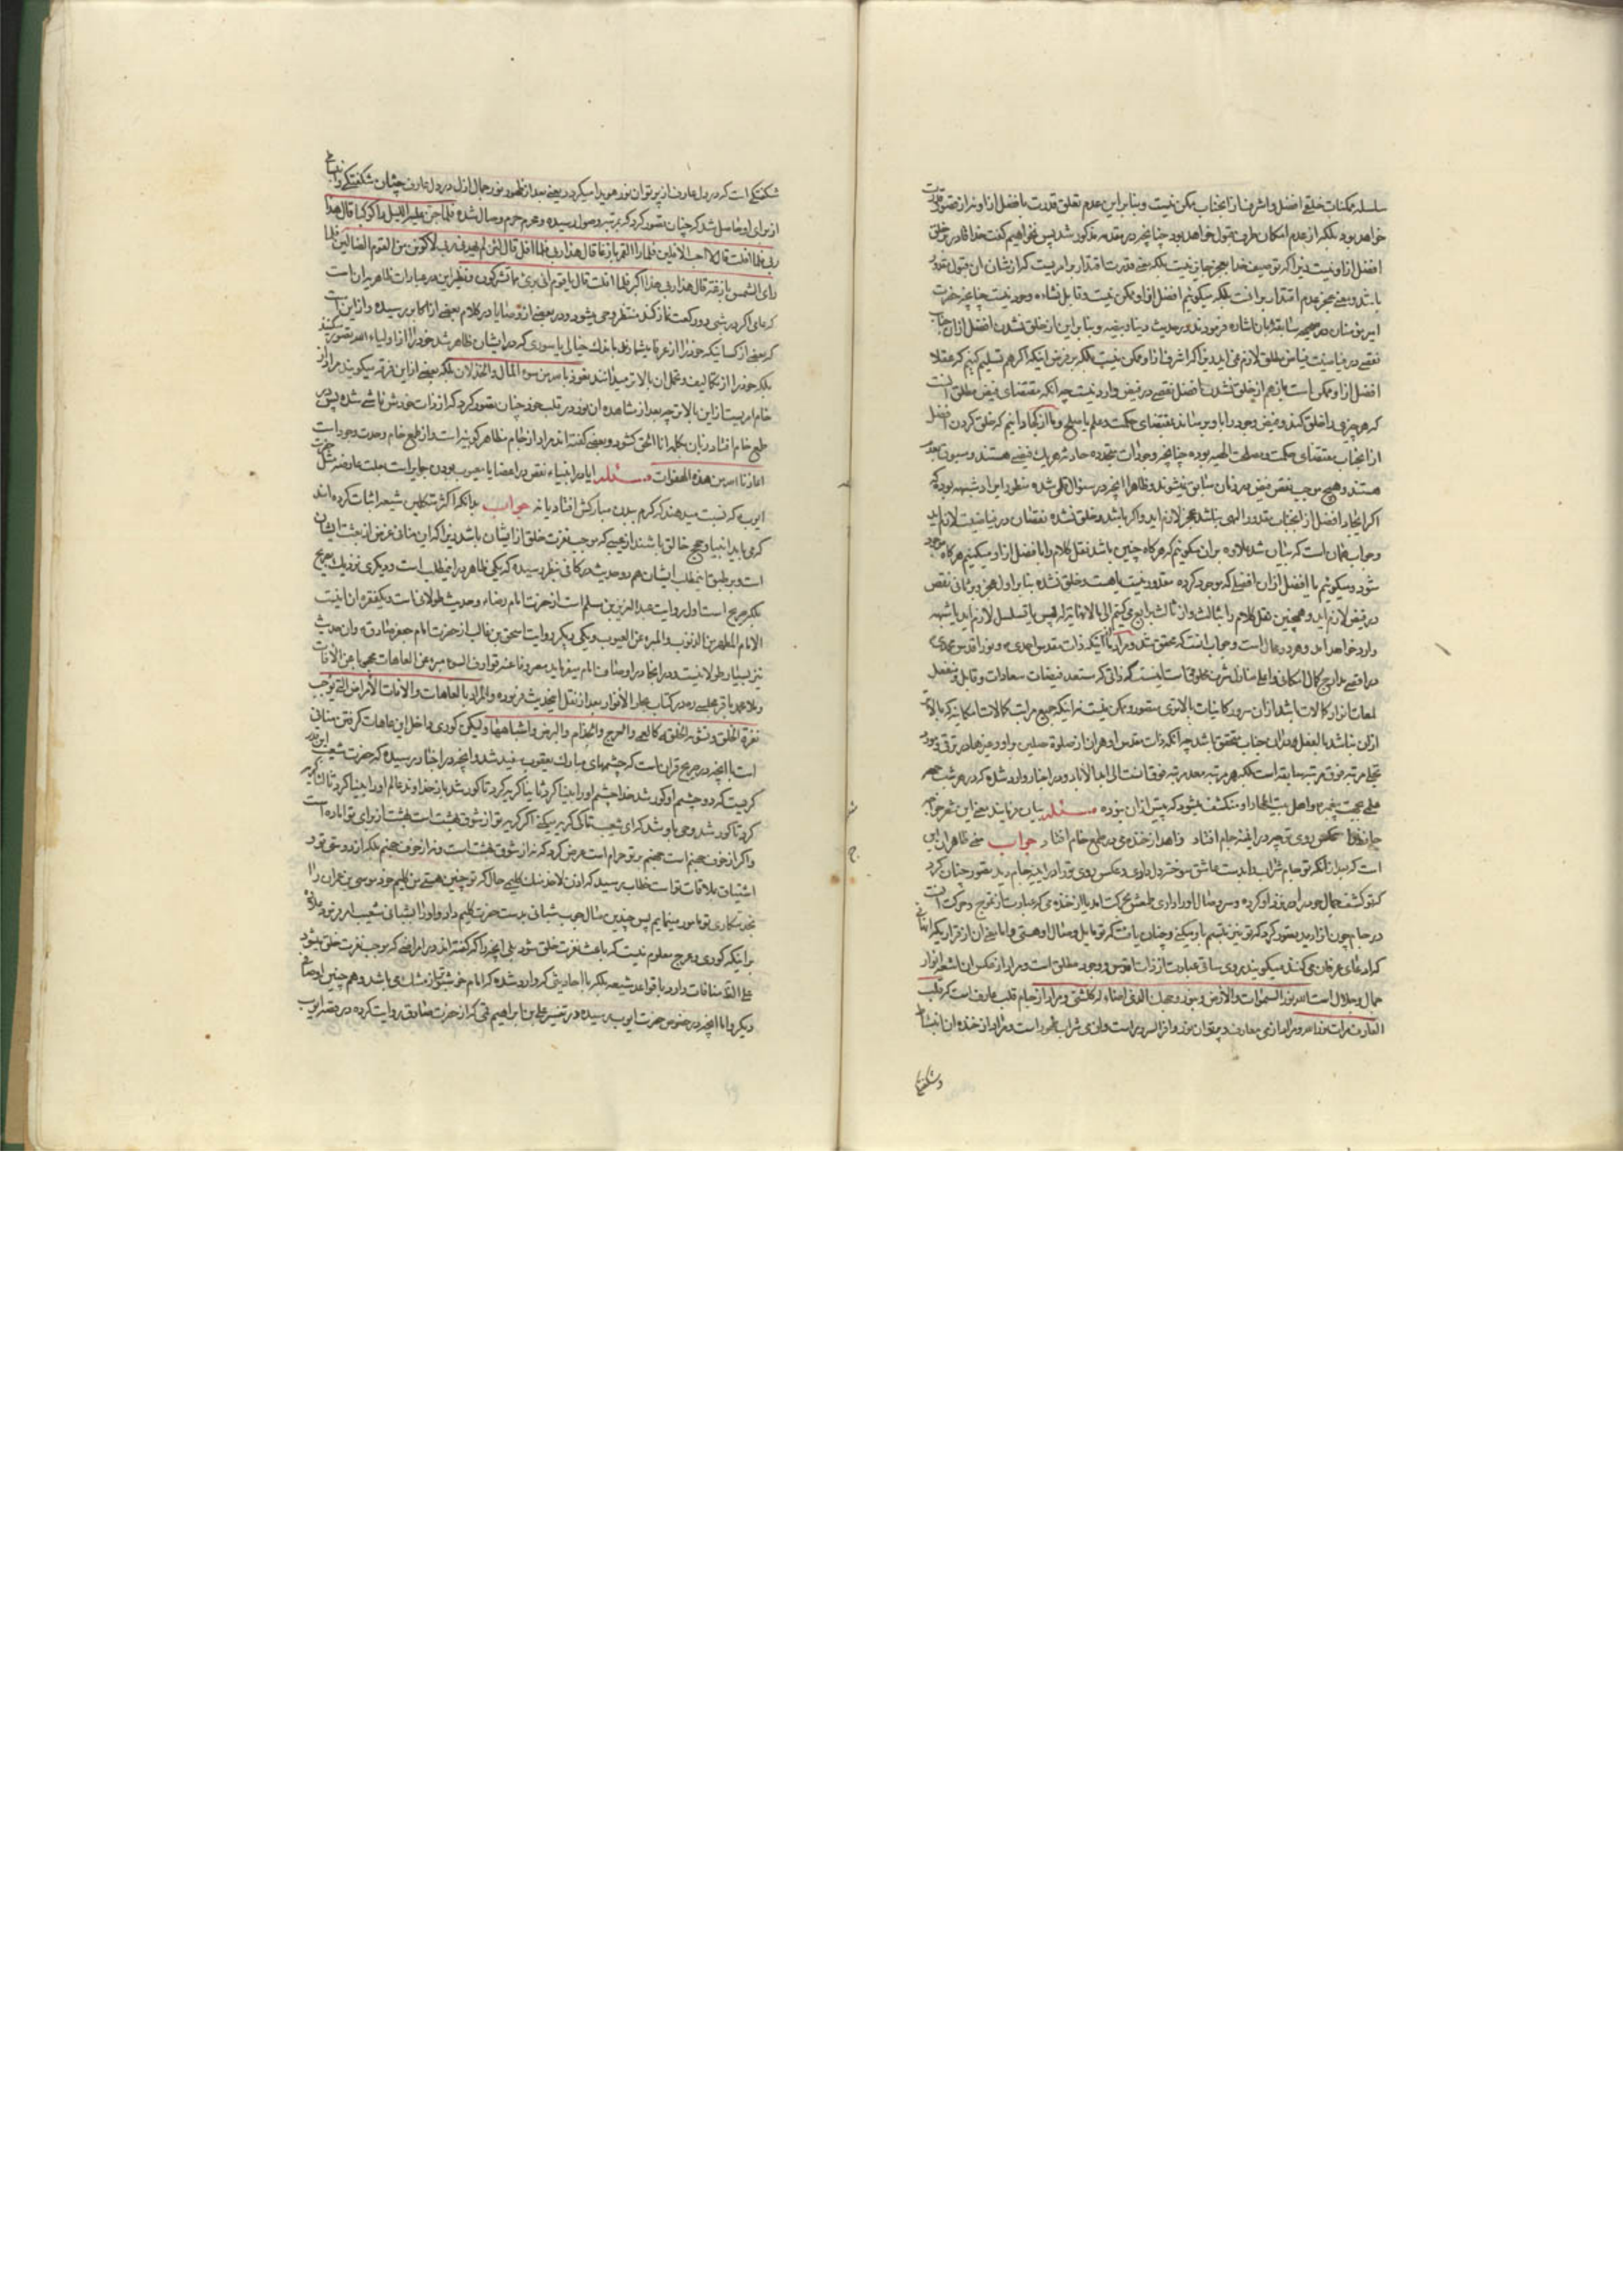 سلسله ممکنات خلقی افضل و اشرف از انجناب ممکن نیست و بنا بر این عدم تعلق قدرت بافضل از او نه از قصور قدرت
خواهد بود بلکه از عدم امکان طرف مقبول خواهد بود چنانچه در مقدمه مذکور شد پس نخواهیم گفت خدا قادر بر خلق
افضل از او نیست زیرا که توصیف خدا بعجز جایز نیست بلکه
باشد و معنی عجز عدم اقتدار بر انست بلکه میکوئیم افضل از او ممکن نیست و قابل نشاءه وجود نیست چنانچه حضرت
امیر مؤمنان در صحیحه سابقه بان اشاره فرمودند و در حدیث و بنا بر این از خلق نشدن افضل از ان جناب
نقصی در فیاضیت فیاض مطلق لازم نمی اید زیرا که اشرف از او ممکن نیست بلکه بر فرض اینکه اکر هم تسلیم کنیم که عقلا
افضل از او ممکن است باز هم از خلق نشدن افضل نقصی در فیض وارد نیست چه انکه مقتضای فیض مطلق انست
که هر چیزی را خلق کند و فیض وجود را باو برساند بمقتضای حکمت و علم باصلح و ما از کجا دانیم که خلق کردن افضل
از انجناب مقتضای حکمت و مصلحت الهیه بوده چنانچه وجودات متجدده حادثه هر یک فیضی هستند و مسبوق بعدم
هستند و هیچ موجب نقص فیض در زمان سابق نمیشوند و ظاهرا انچه در سئوال تلقی شده منظور ایراد شبهه بوده که
اکر ایجاد افضل از انجناب مقدور الهی نباشد عجز لازم اید و اکر باشد و خلق نشده نقصان در فیاضیت لازم اید
و جواب همان است که بیان شد علاوه بر ان میکوئیم که هرکاه چنین باشد نقل کلام را با افضل از او میکنیم هرکاه موجود
شود و میکوئیم با افضل از ان افضلی که موجود کرده مقدور نیست یا هست و خلق نشده بنا بر اول عجز و بر ثانی نقص
در فیض لازم اید و همچنین نقل کلام را بثالث و از ثالث برابع می کنیم الی ما لا نهایة له پس یا تسلسل لازم اید یا شبهه
وارد خواهد امد و هر دو محال است و جواب انست که محقق شد و مراد از اینکه ذات مقدس احمدی و نور اقدس محمدی
در اقصی مدارج کمال امکانی و اعلی منازل شرف مخلوقاتست اینست که ذاتی که مستعد فیضات سعادات و قابل و منفعل
لمعات انوار کمالات باشد از ان سرور کاینات بالاتری متصور و ممکن نیست نه اینکه جمیع مراتب کمالات امکانیه که بالاتر
از ان نباشد بالفعل در ان جناب متحقق باشد چه انکه ذات مقدس او هر ان از صلوة مصلین بر او و غیرها در ترقی و مورد
تجلی مرتبه فوق مرتبه سابقه است بلکه هر مرتبه بعد مرتبه فوقانست الی ابد الاباد و در اخبار وارد شده که در هر شب جمعه
علمی بجهت پیغمبر و اهل بیت اطهار او منکشف میشود که پیش از ان نبوده مسئله بیان فرمایند معنی این شعر خواجه
حافظ را عکس روی تو چو در اینه جام افتاد زاهد از خنده می در طمع خام افتاد جواب معنی ظاهر ان این
است که بعد از انکه تو جام شراب را بدست عاشق سوخته دل دادی و عکس روی تو را در اینه جام دید تصور چنان کرد
در جام چون او را دید تصور کرد که تو نیز تبسم باو میکنی و چنان یافت که تو مایل وصال او هستی
که ادعای عرفان می کنند میکویند روی ساقی عبارت از ذات اقدس و وجود مطلق است و مراد از عکس ان اشعه انوار
جمال و جلال است الله نور السموات و الارض و بنور وجهک الذی اضاء له کلشئ و مراد از جام قلب عارف است که قلب
العارف مرات الله و مراد از می معارف و پرتو ان نور وافر السرور است و ان می شراب طهور است و مراد از خنده ان انبساط
و شکفتکی
شکفتکی است که در دل عارف از پرتو ان نور هویدا میکردد یعنی بعد از ظهور نور جمال ازل در دل عارف چنان شکفتکی و انبساطی
از برای او حاصل شد که چنان تصور کرد که بمرتبه وصول رسیده و محرم حرم وصال شده فلما جن علیه اللیل راى کوکبا قال هذا
ربی فلما افلت قال لا احب الافلین فلما را القمر بازغا قال هذا ربی فلما افل قال لئن لم یهدنی ربی لاکونن من القوم الضالین فلما
رای الشمس بازغة قال هذا ربی هذا اکبر فلما افلت قال یا قوم انی برئ مما تشرکون و نظیر این در عبارات ظاهریه ان است
که عامی اکر در شبی دو رکعت نماز کند منتظر وحی میشود و در بعضی از قضایا در کلام بعضی از اکابر رسیده و از این است
که بعضی از کسانیکه خود را از عرفا میشمارند باندک خیالی یا سوری که در ایشان ظاهر شد خود را از اولیاء الله تصور میکنند
بلکه خود را از تکالیف و تحمل ان بالاتر میدانند نعوذ بالله من سوء المال و الخذلان بلکه بعضی از این فرقه میکویند مراد از
خام امریست از این بالاتر چه بعد از مشاهده ان نور در قلب خود چنان تصور کرد که از ذات خودش ناشی شده پس در
طمع خام افتاد و زبان بکلمه انا الحق کشود و بعضی کفته اند مراد از جام مظاهر کونیه است و از طمع خام وحدت وجود است
اعاذنا الله من هذه الهفوات مسئله ایا در انبیاء نقص در اعضا یا معیوب بودن جایز است بعلت عارضه مثل حضرت
ایوب که نسبت میدهند که کرم ببدن مبارکش افتاد یا نه جواب بدانکه اکثر متکلمین شیعه اثبات کرده اند
که می باید انبیاء و حجج خالق باشند از عیبی که موجب نفرت خلق از ایشان باشد زیرا که این منافی غرض از بعثت ایشان
است و بر طبق این مطلب ایشان هم دو حدیث در کافی بنظر رسیده که یکی ظاهر در این مطلب است و دیکری نزدیک بصریح
بلکه صریح است اول روایت عبدالعزیز بن مسلم است از حضرت امام رضا و حدیث طولانی است و یکفقره ان اینست
الامام المطهر من الذنوب و المبرء عن العیوب و یکی دیکر روایت اسحق بن غالب از حضرت امام جعفر صادق و ان حدیث
نیز بسیار طولانیست و در انجا در اوصاف امام میفرماید مصروفا عنه قوارف السوء مبرء عن العاهات محجوبا عن الافات
و ملا محمد باقر مجلسی ره در کتاب بحار الانوار بعد از نقل اینحدیث فرموده و المراد بالعاهات و الافات الامراض التی یوجب
نفرة الخلق و تشویه الخلقة کالعمی و العرج و الجذام و البرص و اشباهها و لیکن کوری و داخل این عاهات کرفتن منافی
است با انچه در صریح قران است که چشمهای مبارک یعقوب سفید شد و انچه در اخبار رسیده که حضرت شعیب این قدر
کریست که دو چشم او کور شد خدا چشم او را بینا کرد ثانیا کریه کرد تا کور شد باز خداوند عالم او را بینا کرد ثالثا کریه
کرد تا کور شد وحی باو شد که ای شعیب تا کی کریه میکنی اکر کریه تو از شوق بهشت است بهشت از برای تو اماده است
و اکر از خوف جهنم است جهنم بر تو حرام است عرض کرد که نه از شوق بهشت است و نه از خوف جهنم بلکه ارزومند تو
اشتیاق ملاقات تو است خطاب رسید که حال که تو چنین هستی من کلیم خود موسی بن عمران را
بخدمتکاری تو مامور مینمایم پس چندین سال چوب شبانی بدست حضرت کلیم داد و او را بشبانی شعیب امر نمود علاوه
بر اینکه کوری و عرج معلوم نیست که باعث نفرت خلق شود بلی انچه را که کفته اند در امراضی که موجب نفرت خلق میشود
علی الظ منافات دارد با قواعد شیعه بلکه با احادیثی که وارد شده که امام خوشبو تر از مشک می باشد و هم چنین اوصاف
دیکر و اما انچه در خصوص حضرت ایوب رسیده در تفسیر علی بن ابراهیم قمی که از حضرت صادق روایت کرده در قصه ایوب